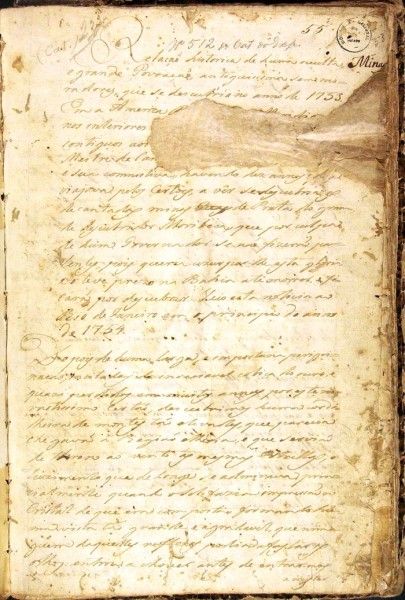 (Cod.
55
Nº 512 do Cat. de Exp.
Minas
Relação historica de huma occulta,
e grande Povoação antiquissima sem mo-
radores, que se descubriu no anno de 1753.
Em a America
nos interiores
contiguos aos
Mestre de Can
e sua comitiva, havendo dez annos, que
viajava pelos Certoẽs, a ver se descubria as
decantadas minas de Prata do gran-
de descubridor Moribeca, que por culpa
de hum Governador se naõ fizeraõ pa-
tentes, pois queria uzurparlhe esta gloria,
e o teve prezo na Bahia até morrer, e fi-
caraõ por descubrir. Veio esta noticia ao
Rio de Janeiro em o principio do anno
de 1754.
Depois de huma larga, e importuna peregri-
naçaõ, incitados da insaciavel cobiça de ouro, e
quasi perdidos em muitos annos por este vas-
tissimo Certaõ, descubrimos huma cordi-
lheira de montes taõ elevados, que parecia
chegavaõ à Regiaõ etherea, e que serviaõ
de throno ao vento, às mesmas Estrellas; o
luzimento que de longe se admirava, prin-
cipalmente quando o Sol fazia impressaõ no
Cristal de que era composta formando hu-
ma vista taõ grande, e agradavel, que nin-
guem daquelles reflexos podia afastar os
olhos: entrou a chover antes de entrarmos
a regis